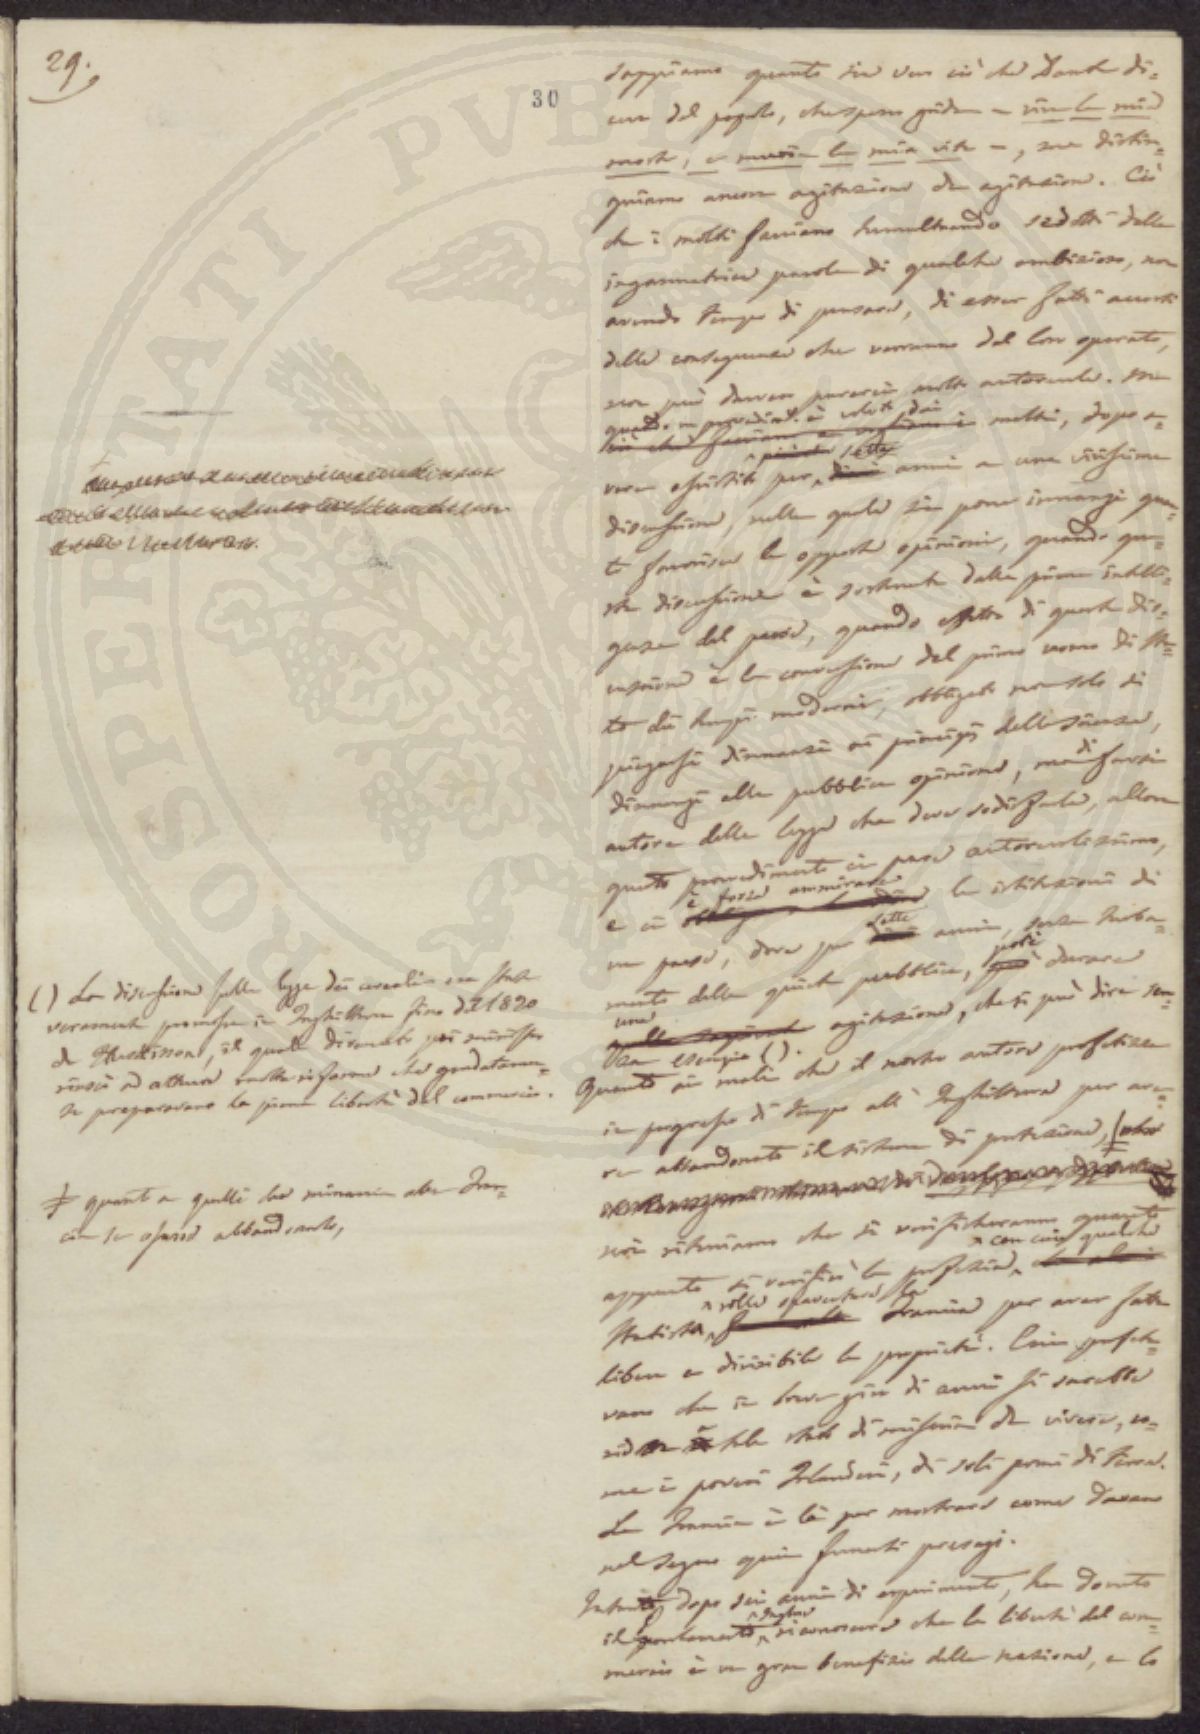 29.
30
sappiamo quanto sia vero ciò che Dante di-
ceva del popolo, che spesso grida – viva la mia
morte, e muoia la mia vita –, ma distin-
guiamo ancora agitazione da agitazione. Ciò
che i molti facciano tumultuando sedotti dalle
ingannatrici parole di qualche ambizioso, non
avendo tempo di pensare, di esser fatti accorti
delle conseguenze che verranno dal loro operato,
non può davvero parerci molto autorevole. Ma
quando un provvedimento è voluto dai
molti, dopo a-
sette
vere assistito per anni a una vivissima
discussione, nella quale si pone innanzi quan-
to favorisce le opposte opinioni, quando que-
sta discussione è sostenuta dalla prima intelli-
genza del paese, quando effetto di questa dis-
cussione è la conversione del primo uomo di Sta-
to dei tempi moderni, obbligato non solo di
piegarsi dinnanzi ai principj della scienza,
dinnanzi alla pubblica opinione, ma di farsi
autore della legge che deve sodisfarla, allora
questo provvedimento ci pare autorevolissimo,
è forza ammirare
e ci le istituzioni di
sette
un paese, dove per anni, senza turba-
potè
mento della quiete pubblica, durare
una
agitazione, che si può dire sen-
za esempio ( ).
Quanto ai mali che il nostro autore profetizza
in progresso di tempo all'Inghilterra per ave-
re abbandonato il sistema di protezione,
noi riteniamo che si verificheranno quanto
con cui qualche
appunto si verificò la profezia
volle spaventare la
statista Francia per aver fatta
libera e divisibile la proprietà. Essi profeta-
vano che in breve giro di anni si sarebbe
a tale stato di miseria da vivere, co-
me i poveri Irlandesi, di soli pomi di terra.
La Francia è là per mostrare come davano
nel segno quei funesti presagi.
Intanto dopo sei anni di esperimento, ha dovuto
inglese
il parlamento riconoscere che la libertà del com-
mercio è un gran benefizio della nazione, e lo
( ) La discussione sulla legge dei cereali era stata
veramente promossa in Inghilterra fino dal 1820
da Huskisson, il quale divenuto poi ministro
riuscì ad attuare molte riforme che gradatamen-
te prepararono la piena libertà del commercio.
‡ quanto a quelli che minaccia alla Fran-
cia se osasse abbandonarlo,